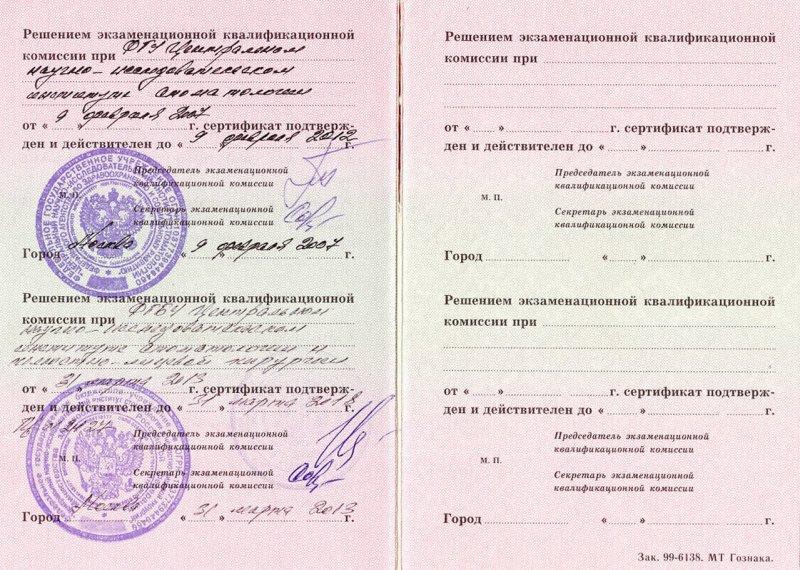 Решением экзаменационной квалификационной
комиссии при ФГУ Центральном
научно-исследовательском
институте стоматологии
от « 9 » февраля 2007 г. сертификат подтверж-
ден и действителен до « 9 » февраля 2012 г.
Председатель экзаменационной
квалификационной комиссии
М. П.
Секретарь экзаменационной
квалификационной комиссии
Город Москва « 9 » февраля 2007 г.
Решением экзаменационной квалификационной
комиссии при ФГБУ Центральном
научно-исследовательском
институте стоматологии и
челюстно-лицевой хирургии
от « 31 » марта 2013 г. сертификат подтверж-
ден и действителен до « 31 » марта 2018 г.
Председатель экзаменационной
квалификационной комиссии
М. П.
Секретарь экзаменационной
квалификационной комиссии
Город Москва « 31 » марта 2013 г.
Решением экзаменационной квалификационной
комиссии при
от « » г. сертификат подтверж-
ден и действителен до « » г.
Председатель экзаменационной
квалификационной комиссии
М. П.
Секретарь экзаменационной
квалификационной комиссии
Город « » г.
Решением экзаменационной квалификационной
комиссии при
от « » г. сертификат подтверж-
ден и действителен до « » г.
Председатель экзаменационной
квалификационной комиссии
М. П.
Секретарь экзаменационной
квалификационной комиссии
Город « » г.
Зак. 99-6138. МТ Гознака.